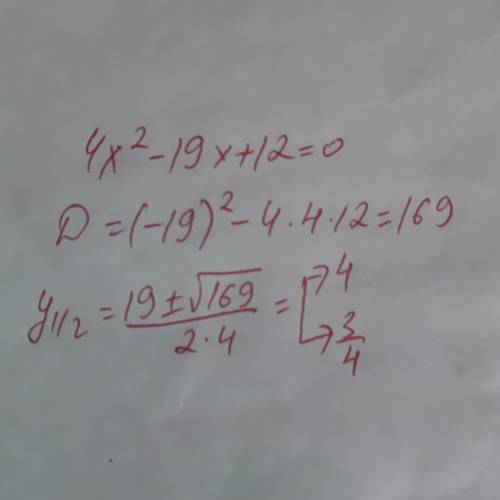 4x² - 19x + 12 = 0
D = (-19)² - 4 · 4 · 12 = 169
y₁/₂ = (19 ± √169)/(2 · 4) = ↱ 4 ↳ 3/4